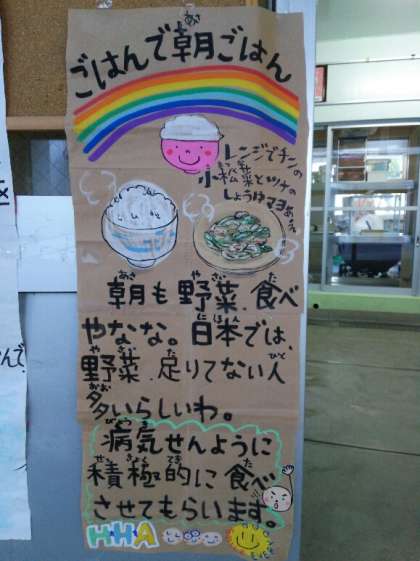 ごはんで朝ごはん
レンジでチンの
小松菜とツナの
しょうゆマヨあえ
朝も野菜、食べ
やなな。日本では、
野菜、足りてない人
多いらしいわ。
病気せんように
積極的に食べ
させてもらいます。
HHA